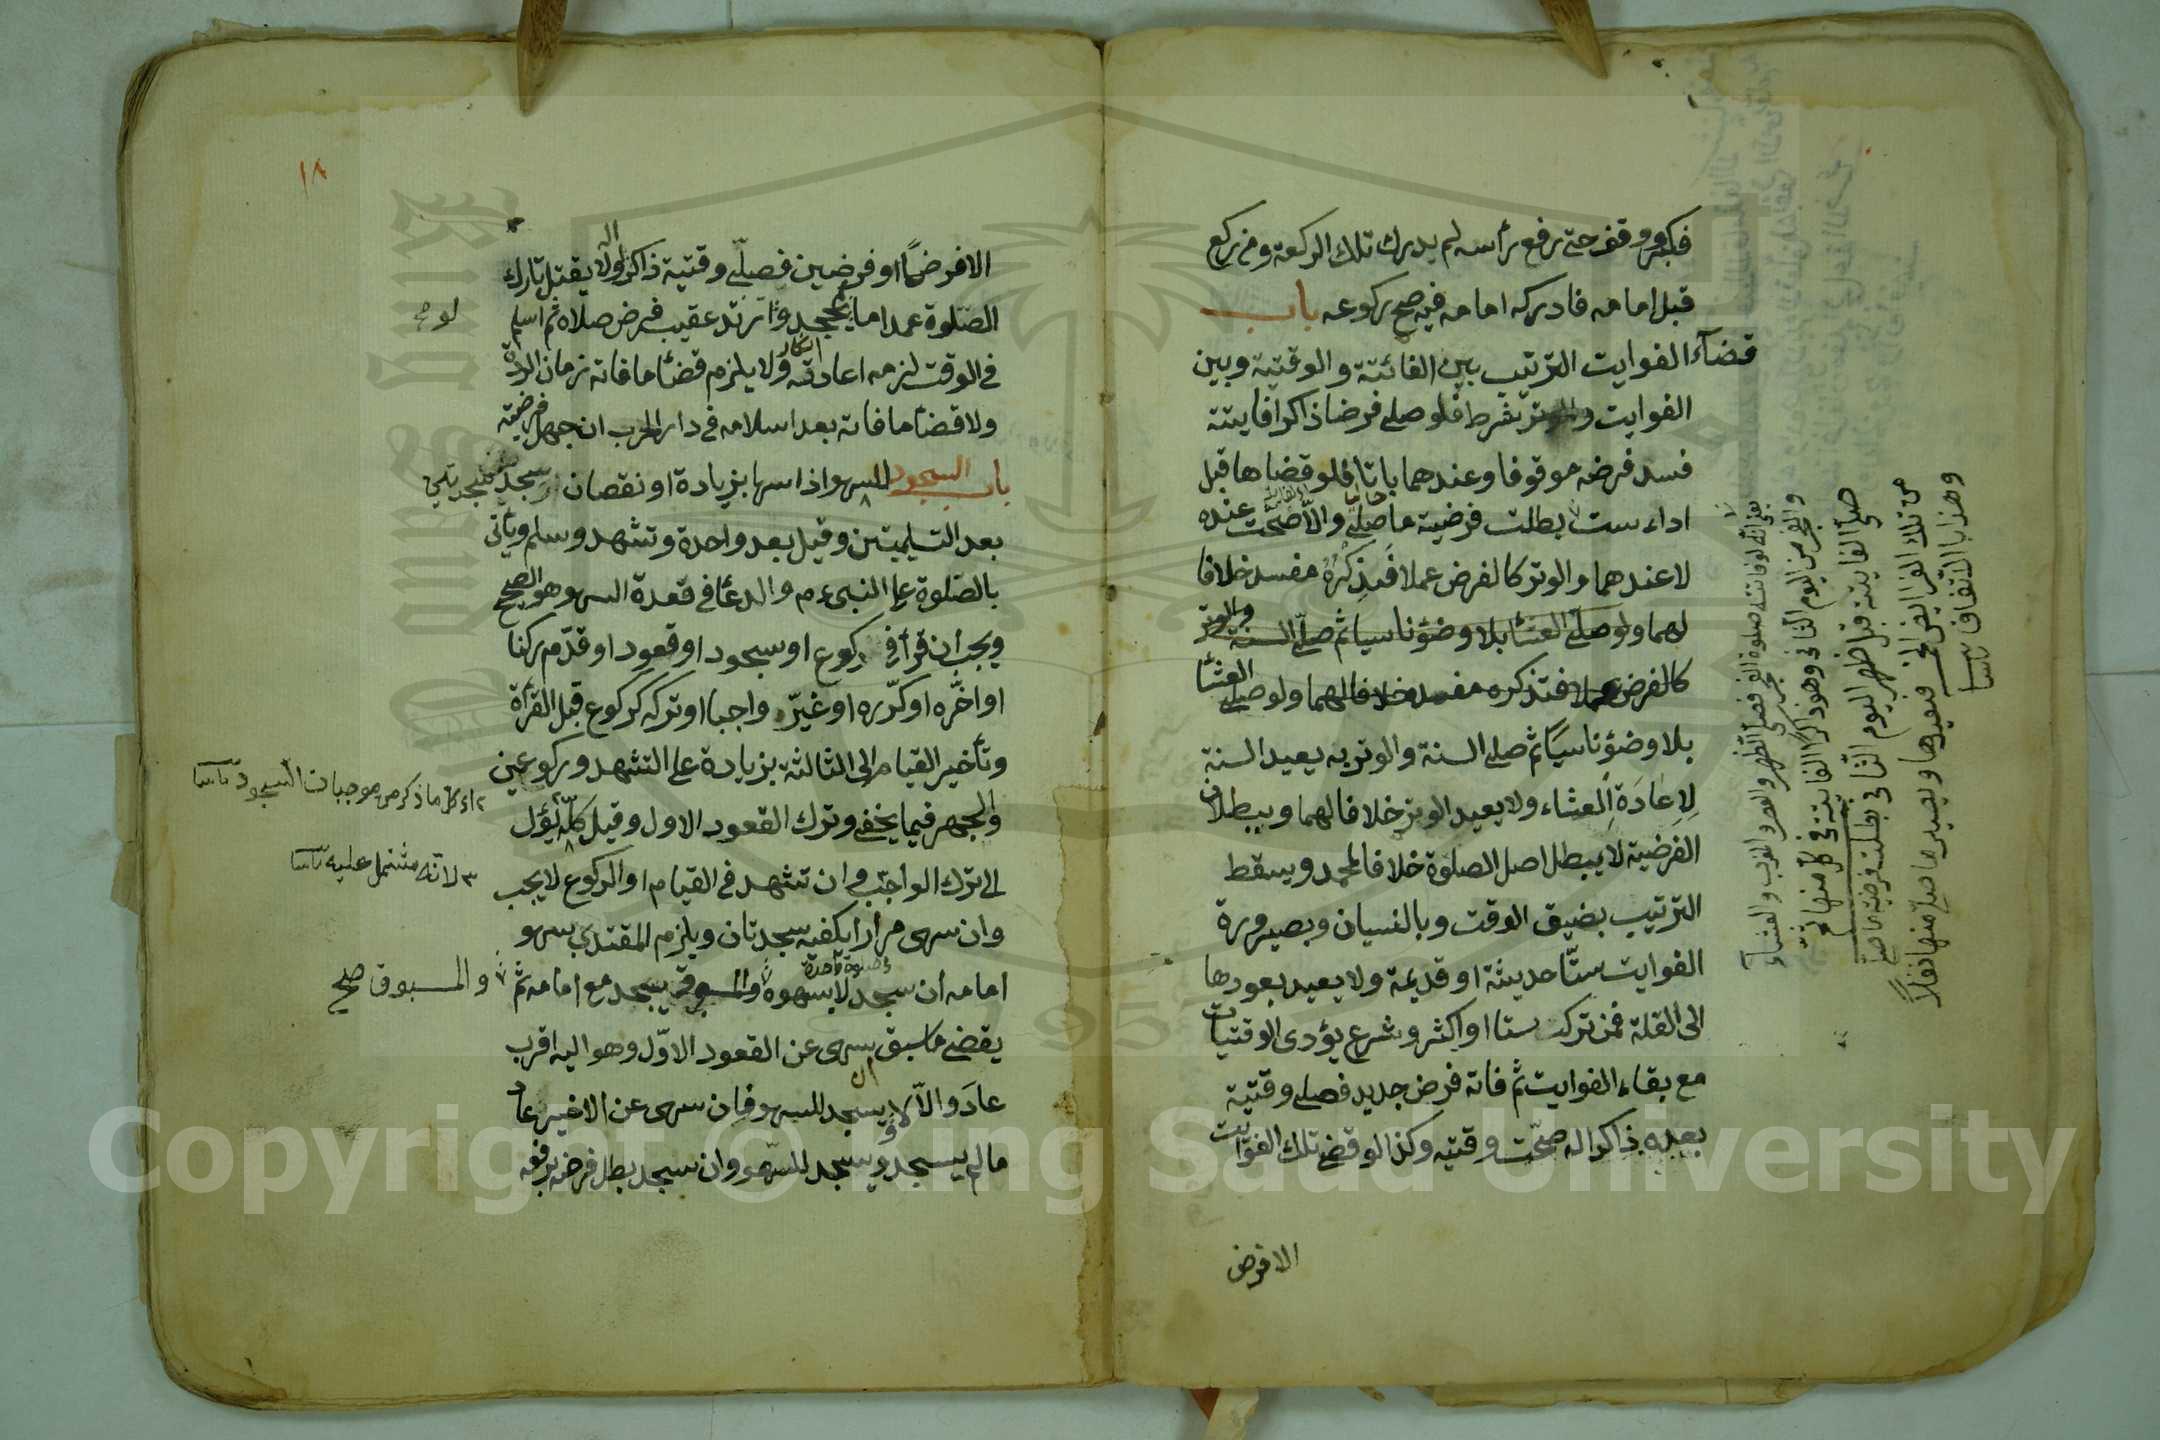 فكبر ووقف حتى رفع رأسه لم يدرك تلك الركعة ومن ركع
قبل امامه فادركه امامه فيه صح ركوعه باب
قضآء الفوايت الترتيب بين الفائتة والوقتية وبين
الفوايت والوتر شرط فلو صلى فرضا ذاكرا فايتة
فسد فرضه موقوفا وعندهما باتا فلو قضاها قبل
اداء ست بطلت فرضية ما صلى والا صحت عنده
لا عندهما والوتر كالفرض عملا فَذِكْرُهُ مفسد خلافا
لهما ولو صلى العشا بلا وضؤ ناسيا ثم صلى السنة والوتر
كالفرض عملا فتذكره مفسد خلافا لهما ولو صلى العشا
بلا وضؤ ناسيًا ثم صلى السنة والوتر به يعيد السنة
لِاِعَادَةِ العشاء ولا يعيد الوتر خلافا لهما وببطلان
الفرضية لا يبطل اصل الصلوة خلافا لمحمد ويسقط
الترتيب بضيق الوقت وبالنسيان وبصيرورة
الفوايت ستّا حديثة او قديمة ولا يعيد بعودها
الى القلة فمن ترك ستا او اكثر وشرع يؤدى الوقتيات
مع بقاء الفوايت ثم فاته فرض جديد فصلى وقتية
بعده ذاكرا له صحّت وقتيه وكذا لو قضى تلك الفوايت
الا فرض
صلى الفايتة قبل ظهر اليوم الثانى بطلت فرضية ما صلى
من تلك الفرايض الخمس فيعيدها ويصير ما صلى منها نفلاً
وهذا بالاتفاق
١٨
الا فرضًا او فرضين فصلّى وقتية ذاكرا له ولا يقتل تارك
الصّلوة عمدا ما لم يجحد ولو ارتد عقيب فرض صلاه ثم اسلم
فى الوقت لزمه اعادته ولا يلزم قضأ ما فاته زمان الردة
انكار
ولا قضأ ما فاته بعد اسلامه فى دار الحرب ان جهل فرضيته
باب السجود للسهو اذا سها بزيادة او نقصان سجد سجدتين
بعد التسليمتين وقيل بعد واحدة وتشهد وسلم ويأتى
بالصّلوة على النبى ءم والدعأ فى قعدة السهو هو الصحيح
ويجب أن قرأ فى ركوع او سجود او قعود او قدّم ركنا
او اخّره او كرّره او غيّر واجبا او تركه كركوع قبل القرأة
وتأخير القيام الى الثالثة بزيادة على التشهد وركوعين
والجهر فيما يخفى وترك القعود الاول وقيل كلّه يؤل
الى ترك الواجب وان تشهد فى القيام او الركوع لا يجب
وان سهى مرارا يكفيه سجدتان ويلزم المقتدي بسهو
امامه أن سجد لا بسهوه والمسبوق يسجد مع امامه ثم
يقضى ما سبق سهى عن القعود الاوّل وهو اليه اقرب
عادَ والاّ لا ويسجد للسهو فإن سهى عن الاخير عاد
ما لم يسجد ويسجد للسّهو وان سجد بطل فرضه برفعه
٢ اى كل ما ذكر من موجبات السجود
٣ لانّه مشتمل عليه
والمسبوق صح